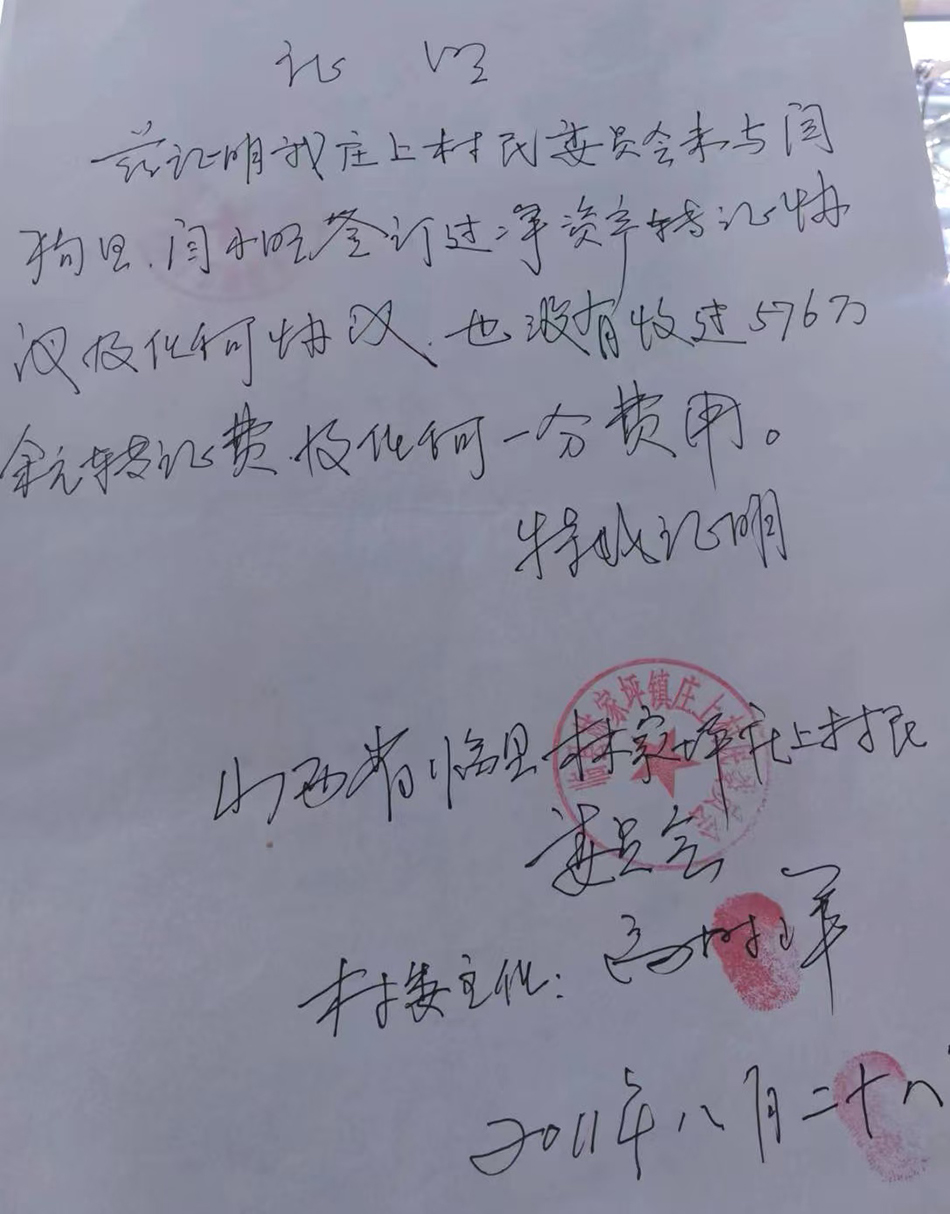 证 明
兹证明我庄上村民委员会未与闫
狗旦、闫小旺签订过净资产转让协
议及任何协议.也没有收过576万
余元转让费.及任何一分费用。
特此证明
山西省临县林家坪庄上村民
委员会
林家坪镇庄上村
委员会
村委主任：高 军
2011年八月二十八